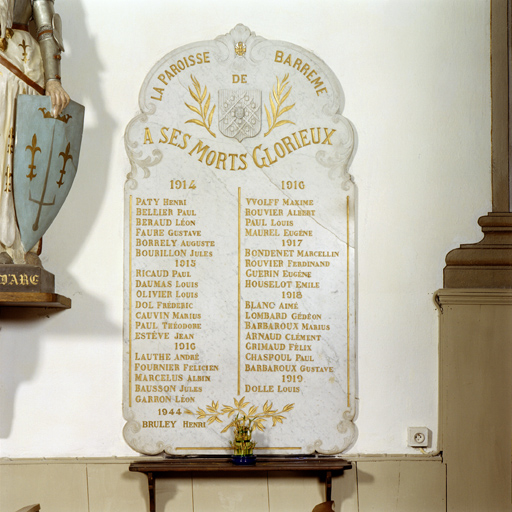 LA PAROISSE DE BARREME
A SES MORTS GLORIEUX
1914
PATY HENRI
BELLIER PAUL
BERAUD LÉON
FAURE GUSTAVE
BORRELY AUGUSTE
BOURILLON JULES
1915
RICAUD PAUL
DAUMAS LOUIS
OLIVIER LOUIS
DOL FRÉDERIC
CAUVIN MARIUS
PAUL THÉODORE
ESTÈVE JEAN
1916
LAUTHE ANDRÉ
FOURNIER FELICIEN
MARCELUS ALBIN
BAUSSON JULES
GARRON LÉON
1944
BRULEY HENRI
1916
YVOLFF MAXIME
ROUVIER ALBERT
PAUL LOUIS
MAUREL EUGÈNE
1917
BONDENET MARCELLIN
ROUVIER FERDINAND
GUERIN EUGÈNE
HOUSELOT EMILE
1918
BLANC AIMÉ
LOMBARD GÉDÉON
BARBAROUX MARIUS
ARNAUD CLÉMENT
GRIMAUD FÉLIX
CHASPOUL PAUL
BARBAROUX GUSTAVE
1919
DOLLE LOUIS
D'ARC